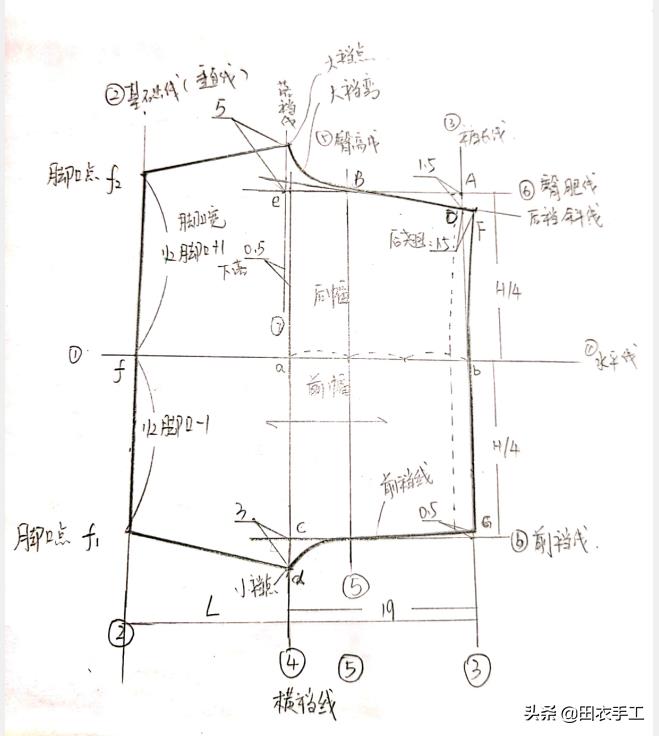 大裆点
大裆弯
②基础线(垂直线)
落裆线
5
⑤臀高线
③裤长线
脚口点 f₂
1.5
A
B
e
D
F
⑥臀肥线
后裆斜线
脚口宽
1/2脚口+1
0.5
下落
后翘1.5
后幅
H/4
⑦
①
f
a
b
水平线
前幅
1/2脚口-1
H/4
前裆线
脚口点 f₁
3
C
0.5
G
⑥前裆线
小裆点
d
⑤
L
19
②
④
⑤
③
横裆线
头条 @田衣手工